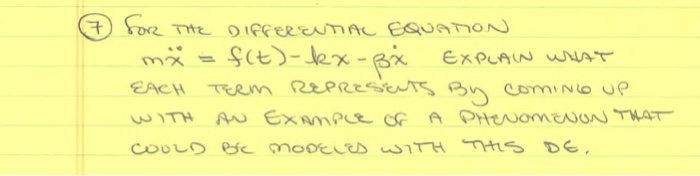 7 FOR THE DIFFERENTIAL EQUATION
mẍ = f(t) - kx - βẋ EXPLAIN WHAT
EACH TERM REPRESENTS BY COMING UP
WITH AN EXAMPLE OF A PHENOMENON THAT
COULD BE MODELED WITH THIS DE.